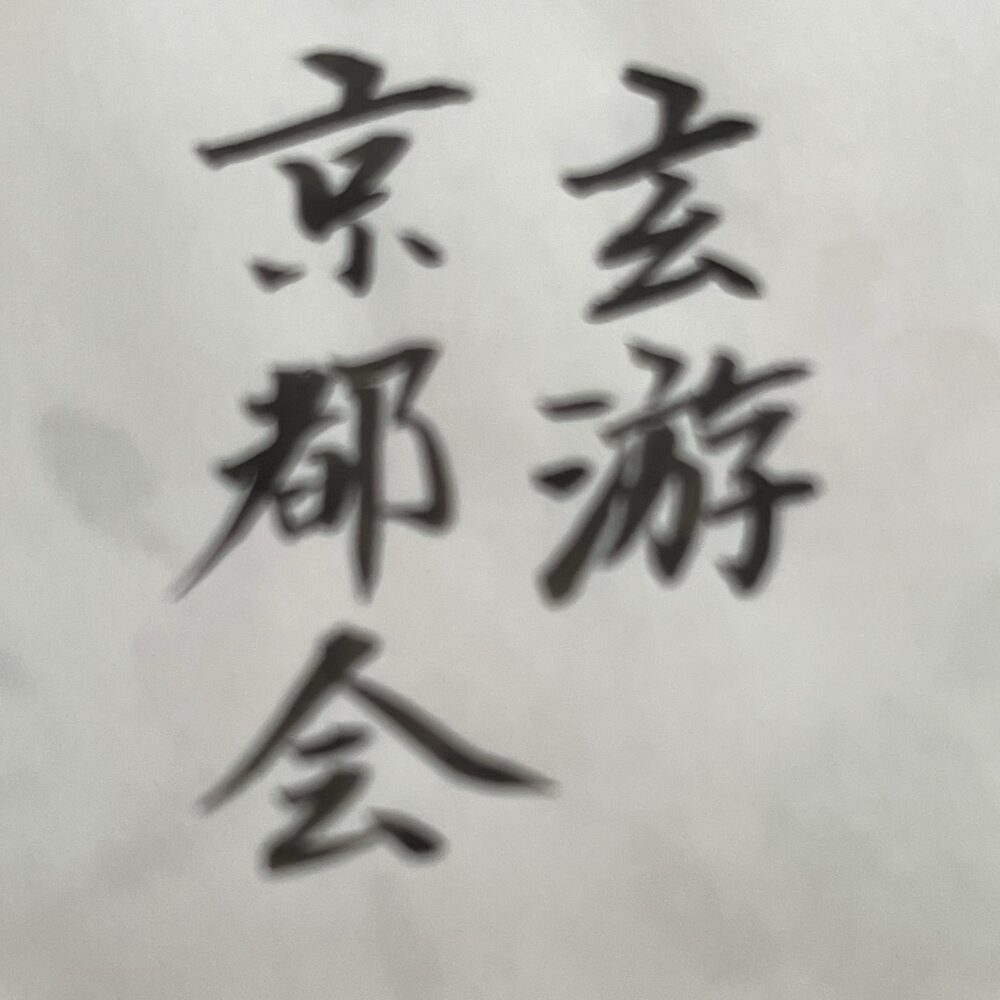 玄游
京都会